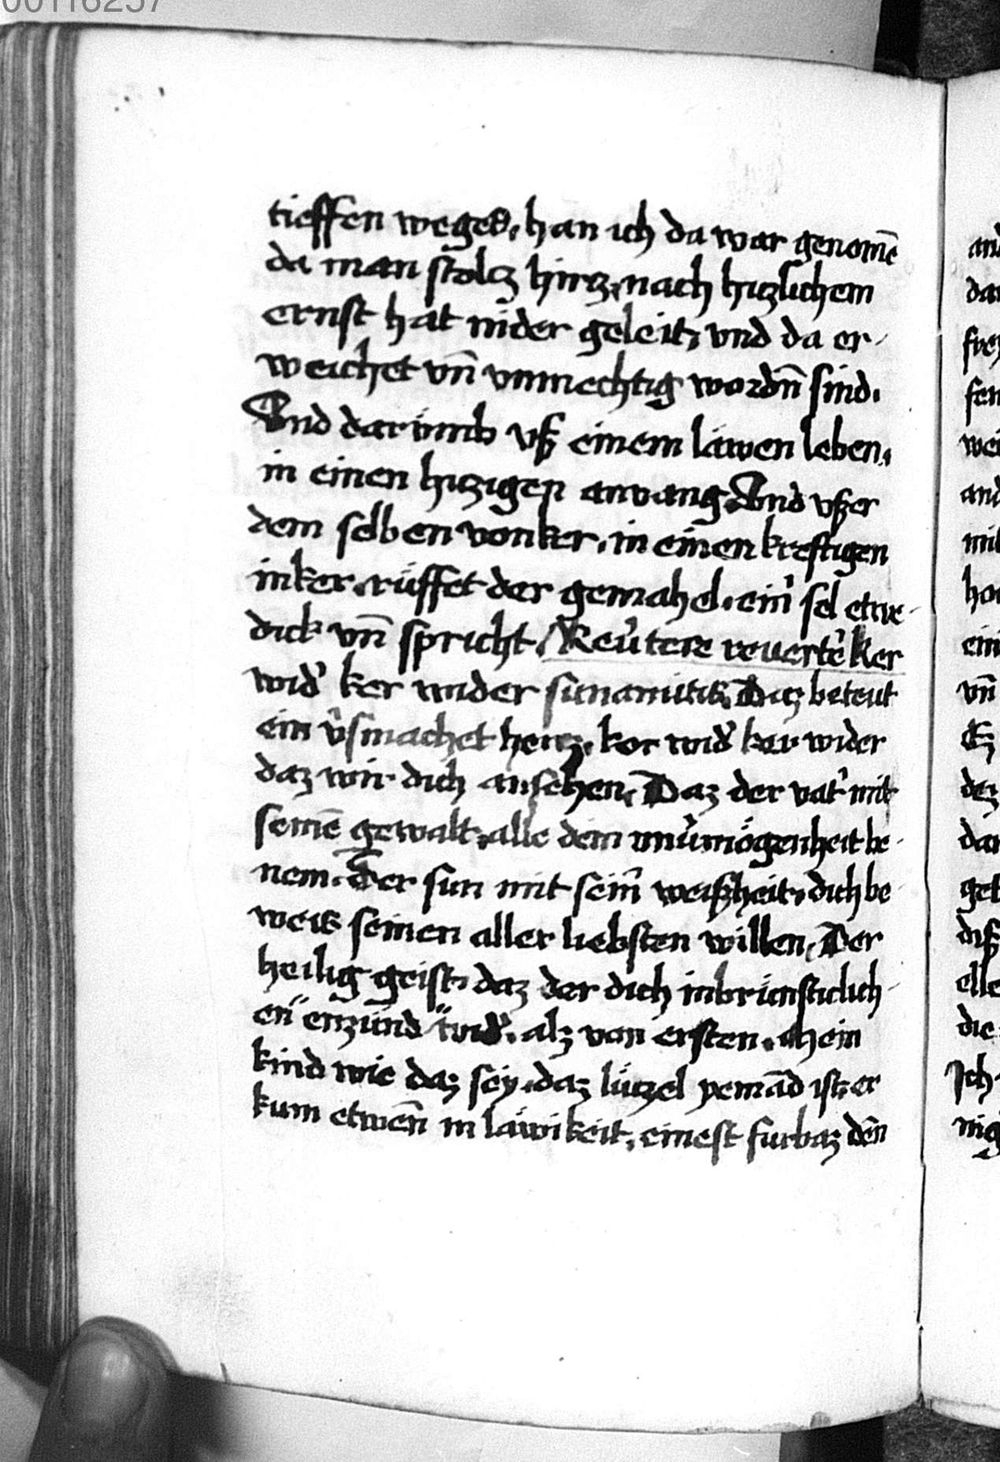 00116257
tieffen weges, han ich da war genomē
da man stolcz hircz, nach hiczlichem
ernst hat nider geleit, vnd da er-
weichet vn̄ vnmechtig wordn̄ sind.
Vnd dar vmb vß einem läwen leben,
in einen hiczigen anvang. Vnd vßer
dem selben vonker, in einen kreftigen
inker, rüffet der gemahel, ein̉ sel etwe-
dick vn̄ spricht. Reu̓tere reverte̓ ker
wid̓ ker wider sunamitis. Daz beteut
ein v̓smachet hercz, ker wid̓ ker wider
daz wir dich ansehen. Daz der vat̓ mit
seinē gewalt, alle dein vnu̓mögenheit be-
nem. Der sun mit sein̄ weißheit, dich be-
weis seinen aller liebsten willen. Der
heilig geist, daz der dich inbrünsticlich-
en enzünd wid̓, alz von ersten. Mein
kind wie daz sey, daz lüczel yemād ist, er
kum etwen̄ in läwikeit, einest furbaz den̄
and
dar
frey
fen
wei
and
mit
ho
ein
vn̄
Ez
dez
dar
get
diß
elle
die
Ich
nig